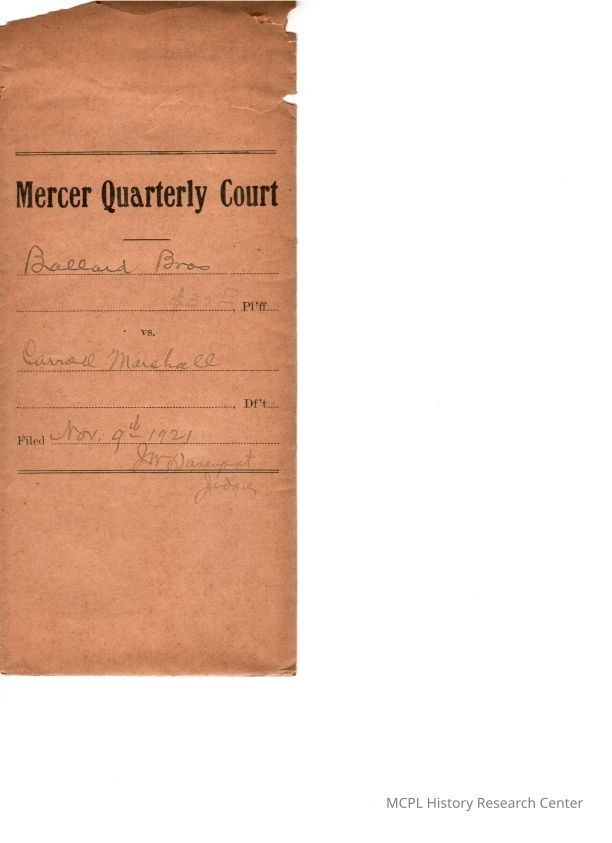 Mercer Quarterly Court
Ballard Bros
$32.50, Pl'ff.
vs.
Carroll Marshall
, Df't.
Filed Nov. 9th 1921
JW Davenport
Judge
MCPL History Research Center